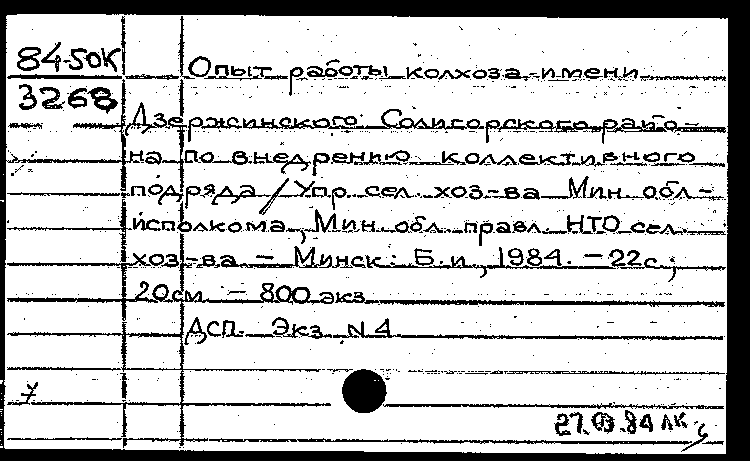 84-50К
3268
Опыт работы колхоза имени
Дзержинского Солигорского райо-
на по внедрению коллективного
подряда / Упр. сел. хоз-ва Мин. обл-
исполкома, Мин. обл. правл. НТО сел.
хоз-ва. - Минск: Б.и., 1984. - 22с.;
20см. - 800 экз.
ДСП. Экз. N 4
27. .84 ЛК